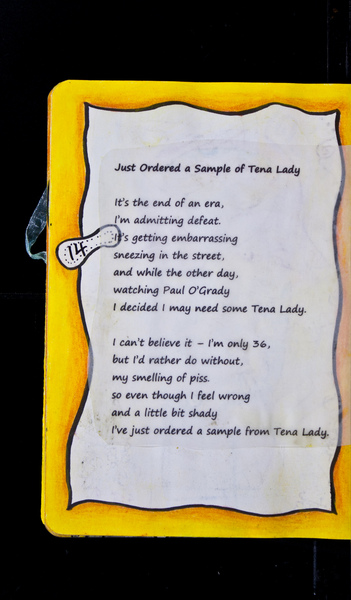 Just Ordered a Sample of Tena Lady
It's the end of an era,
I'm admitting defeat.
It's getting embarrassing
sneezing in the street,
and while the other day,
watching Paul O'Grady
I decided I may need some Tena Lady.
I can't believe it – I'm only 36,
but I'd rather do without,
my smelling of piss.
so even though I feel wrong
and a little bit shady
I've just ordered a sample from Tena Lady.
14